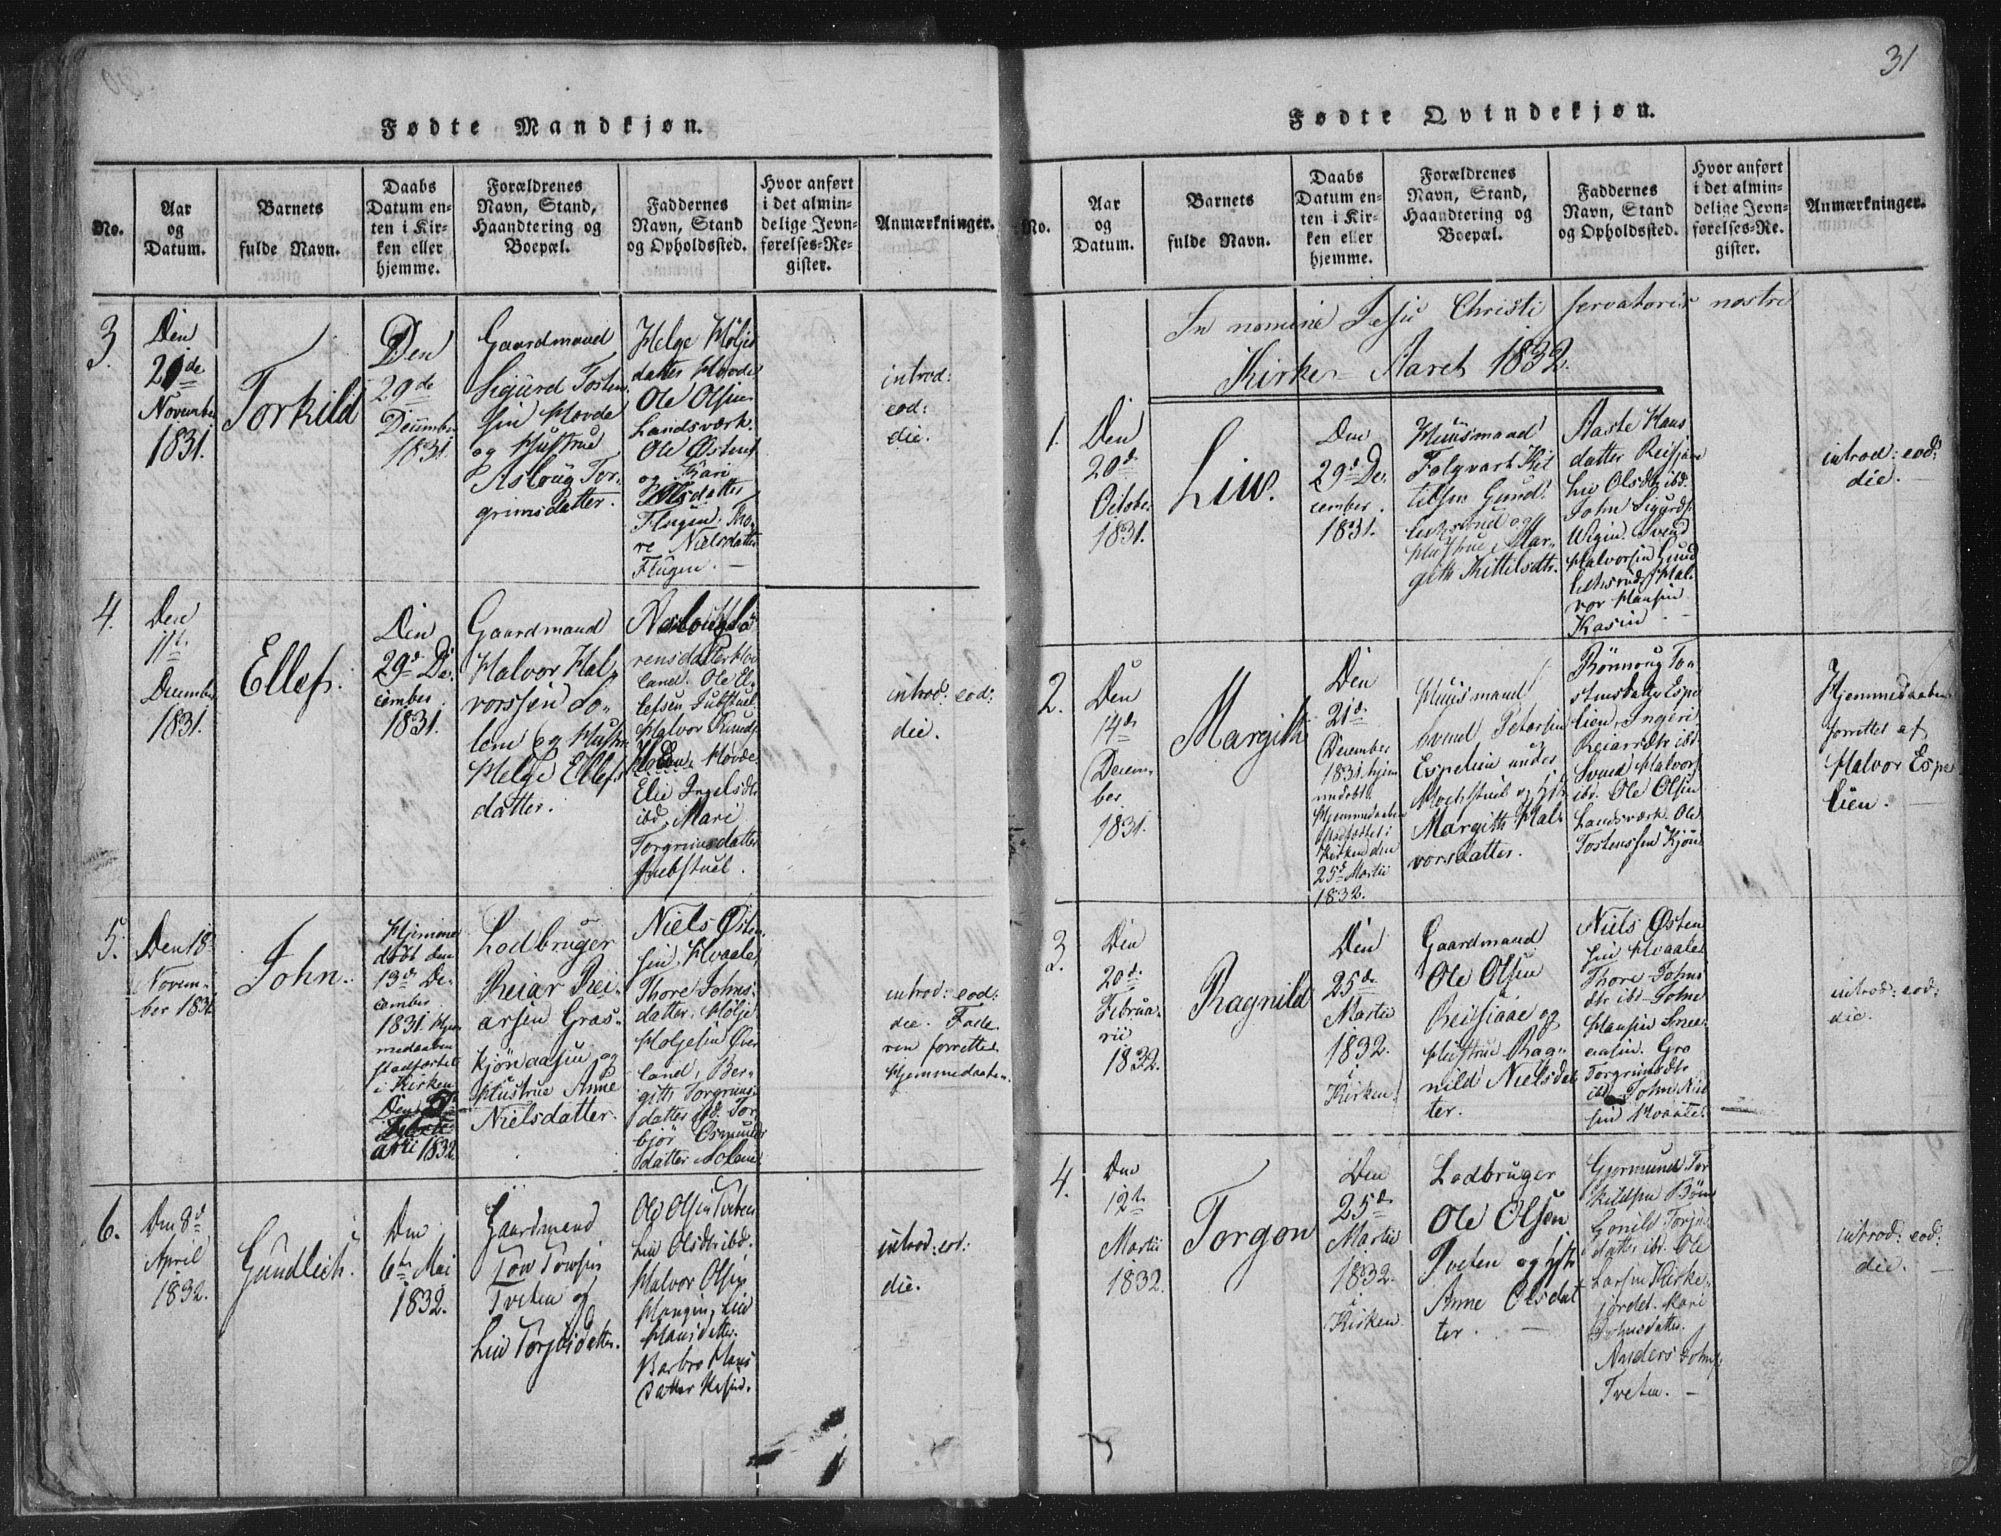 Fødte Mandkjøn.
No.
Aar
og
Datum.
Barnets
fulde Navn.
Daabs
Datum en-
ten i Kir-
ken eller
hjemme.
Forældrenes
Navn, Stand,
Haandtering og
Boepæl.
Faddernes
Navn, Stand
og Opholdssted.
Hvor anført
i det almin-
delige Jevn-
førelses-Re-
gister.
Anmærkninger.
3.
Den
29de
November
1831.
Torkild
Den
29de
December
1831.
Gaardmand
Sigurd Tosten
sen Hovde
og Hustrue
Aslaug Tor-
grimsdatter.
Helge Høljes
datter Hovde
Ole Olsen
Landsværk.
Ole Østens
og Kari
Nielsdatter
Flugen. Tho-
re Nielsdatter
Flugen. —
introd:
eod:
die.
4.
Den
11te
December
1831.
Ellef.
Den
29de De-
cember
1831.
Gaardmand
Halvor Hal-
vorssen So-
lem og Hustr.
Helge Ellefs
datter.
Aasloug So
rensdatter Ho
land. Ole El-
lefsen Jubstuel
Halvor Knuds
Hovde.
Elie Ingelsdtr
ibd. Mari
Torgrimsdatter
Jubstuel.
introd: eod:
die.
5.
Den 18
Novem-
ber 1831
John.
Hjemme
døbt den
13de De-
cember
1831. Hjem
medaaben
stadfæstet
i Kirken
Den
Febru
arii 1832
Lodbruger
Reiar Rei-
arsen Gras-
kjøreaasen og
Hustrue Anne
Nielsdatter.
Niels Østen-
sen, Hvaale,
Thore Johns-
datter. Hølje
Holjesen Øver
land, Ber-
gith Torgrims-
datter ibd. Tor-
bjør Osmunds
datter Solem
introd: eod:
die. Fade-
ren forrettede
Hjemmedaaben.
6.
Den 8de
April
1832.
Gundleich.
Den
6te Mai
1832.
Gaardmand
Tov Tovsen
Tveten og
Liv Torjusdatter.
Ole Olsen Tveten
Liv Olsdtr ibd.
Halvor Olsen
Liv
Hansdatter.
Barbro Hans
datter
introd: eod:
die.
31
Fødte Qvindekjøn.
No.
Aar
og
Datum.
Barnets
fulde Navn.
Daabs
Datum en-
ten i Kir-
ken eller
hjemme.
Forældrenes
Navn, Stand,
Haandtering og
Boepæl.
Faddernes
Navn, Stand
og Opholdssted.
Hvor anført
i det almin-
delige Jevn-
førelses-Re-
gister.
Anmærkninger.
In nomine Jesu Christi servatoris nostri
Kirke-Aaret 1832.
1.
Den
20de
Octobr.
1831.
Liv.
Den
29de De-
cember
1831.
Huusmand
Folqvart Kit
tilsen Gund
leiksrud og
Hustrue Mar-
gith Kittilsdtr.
Aaste Hans
datter Reisjaae
Liv Olsdtr ibd.
John Sigurds.
Wigen. Svend
Halvorsen Gund
leiksrud. Hal-
vor Hansen
Kasin. —
introd: eod:
die. —
2.
Den
14de
Decem-
ber
1831.
Margith
Den
21de
December
1831. hjem
medøbt.
Hjemmedaaben
stadfæstet i
Kirken den
25de Martii
1832.
Huusmand
Svend Petersen
Espelien under
og Hstr
Margith Hal-
vorsdatter.
To-
stensdatter Espe
lien. Ingeri
Reiarsdtr ibd.
Svend Halvors.
ibd. Ole Olsen
Landsværk. Ole
Tostenssen Kjøn
Hjemmedaaben
forrettet af
Halvor Espe
lien. —
3.
Den
20de
Februa-
rii
1832.
Ragnild
Den
25de
Martii
1832.
i
Kirken.
Gaardmand
Ole Olsen
Reisiaae og
Hustrue Rag-
nild Nielsdat
ter.
Niels Østen
sen Hvaale
Thore Johns
dtr ibd. John
Hansen
Gro
Torgrimsdtr
ibd. John Niel
sen Hvaale.
introd: eod:
die.
4.
Den
12te
Martii
1832.
Torgon
Den
25de
Martii
1832.
i
Kirken.
Lodbruger
Ole Olsen
Tveten og Hstr
Anne Olsdat
ter. —
Gjermund Tor
kildsen Bøen
Gonild Torju
datter ibd. Ole
Larsen Kirke-
jordet. Mari
Johnsdatter.
Anders Johns.
Tveten. —
introd: eod:
die. —